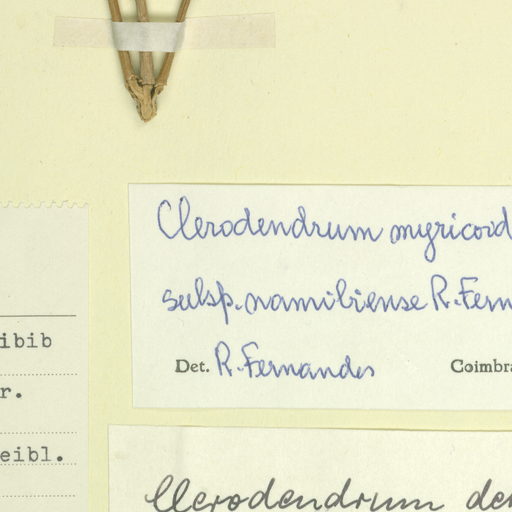 Clerodendrum myricoid
subsp. namibiense R. Fern
Det. R. Fernandes Coimbra
ibib
r.
eibl.
Clerodendrum den